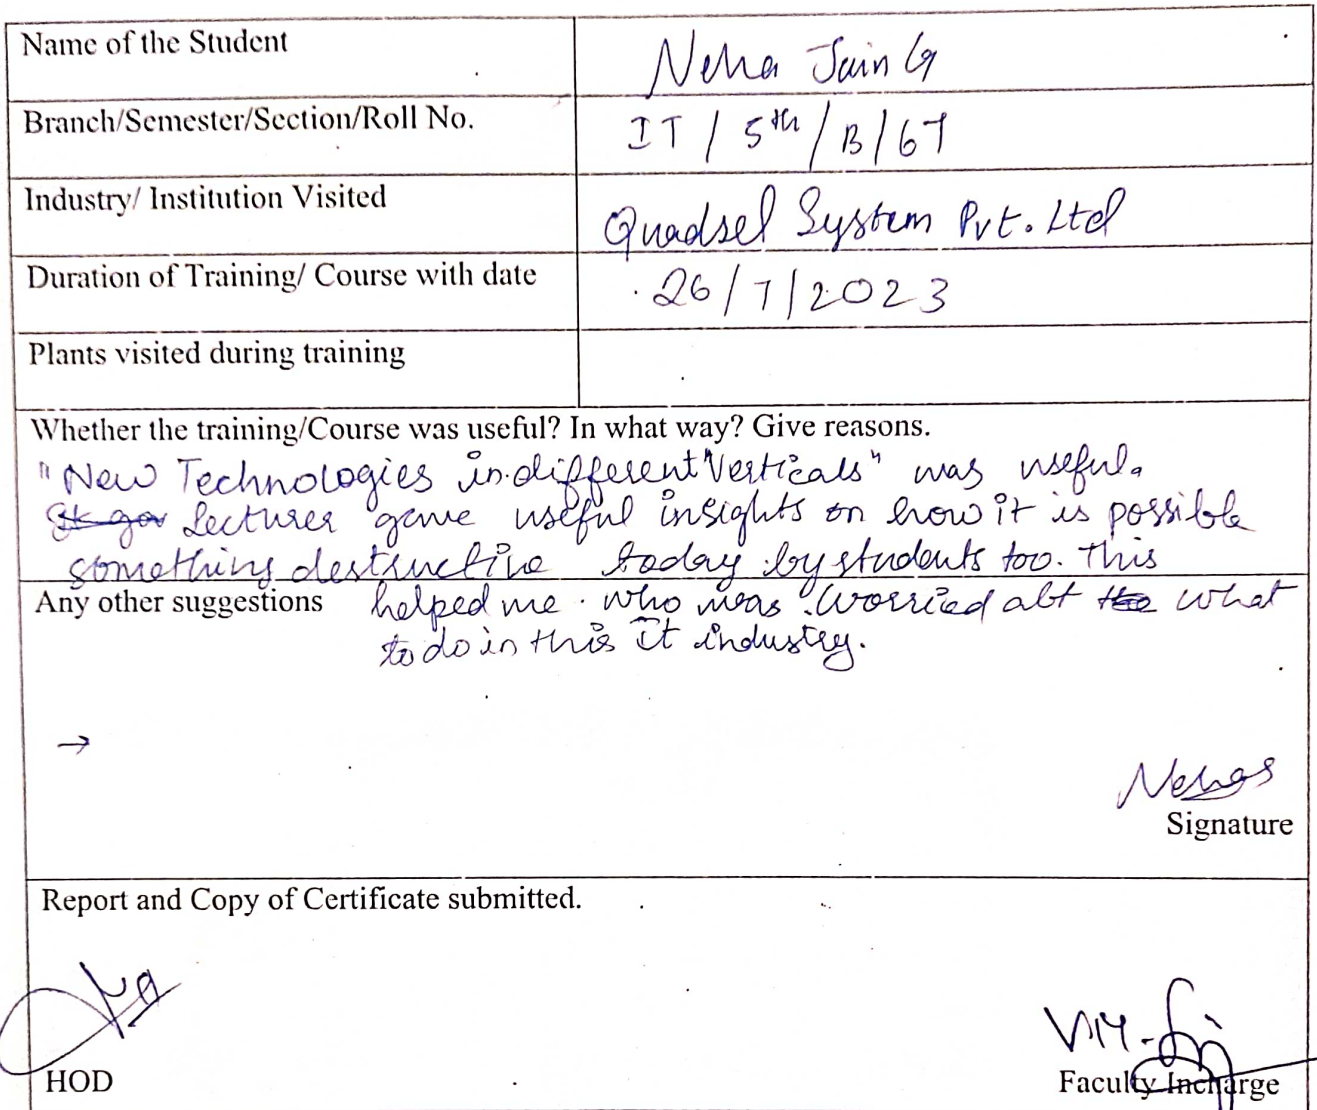 Name of the Student Neha Jain G
Branch/Semester/Section/Roll No. IT / 5th / B / 67
Industry/ Institution Visited Quadsel System Pvt. Ltd
Duration of Training/ Course with date 26/7/2023
Plants visited during training
Whether the training/Course was useful? In what way? Give reasons.
"New Technologies in different Verticals" was useful.
Lecturer gave useful insights on how it is possible
something destructive today by students too. This
Any other suggestions helped me who was worried abt what
to do in this it industry.
→
Signature
Report and Copy of Certificate submitted.
HOD
Faculty Incharge